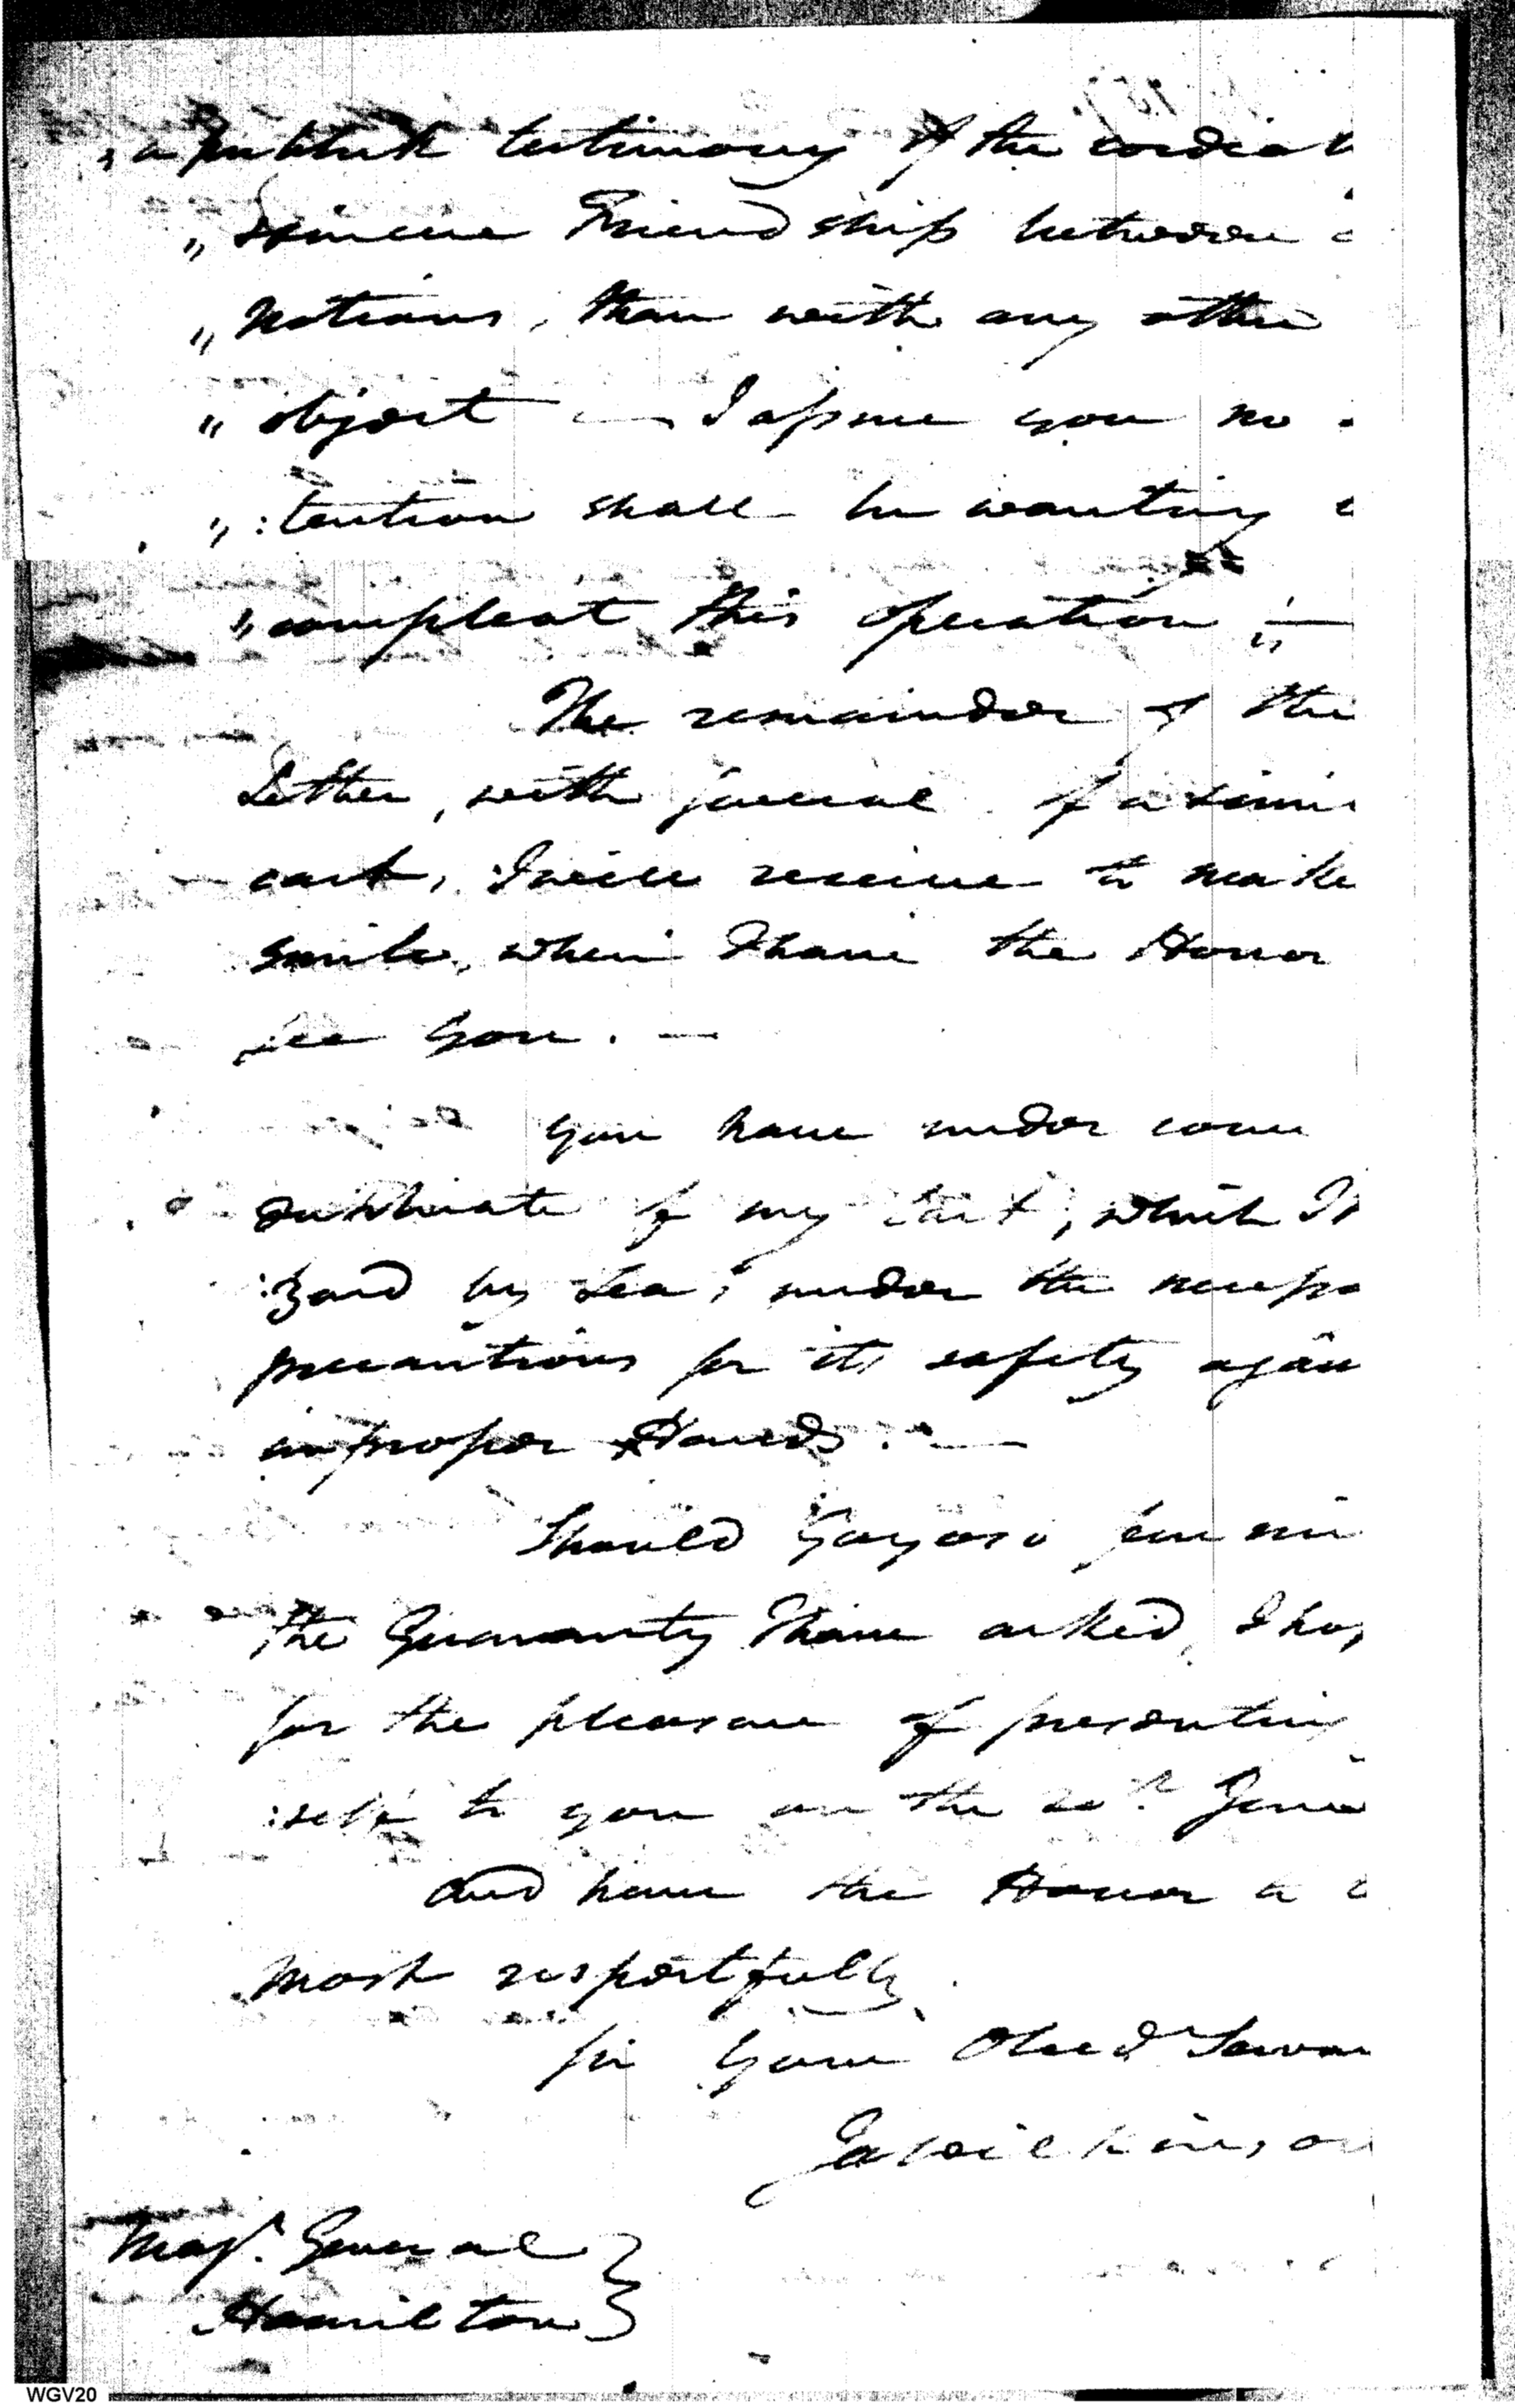 „ a publick testimony of the cordial
„ Sincere Friendship between
„ Nations, than with any other
„ object — I assure you no
„ :tention shall be wanting
„ compleat this operation „ —
The remainder of the
Letter, with several of a simi
cast, I will reserve to make
smile, when I have the Honor
see you. —
You have under cover
duplicate of my last, which I
:zard by Sea, under the necessa
precautions for its safety again
improper Hands. —
Should Gayoso
the Guaranty I have asked, I ho
for the pleasure of presenting
:self to you on the 20th June
and have the Honor to b
most respectfully
Sir Your Obed Servan
Ja Wilkinson
Majr. General }
Hamilton }
WGV20